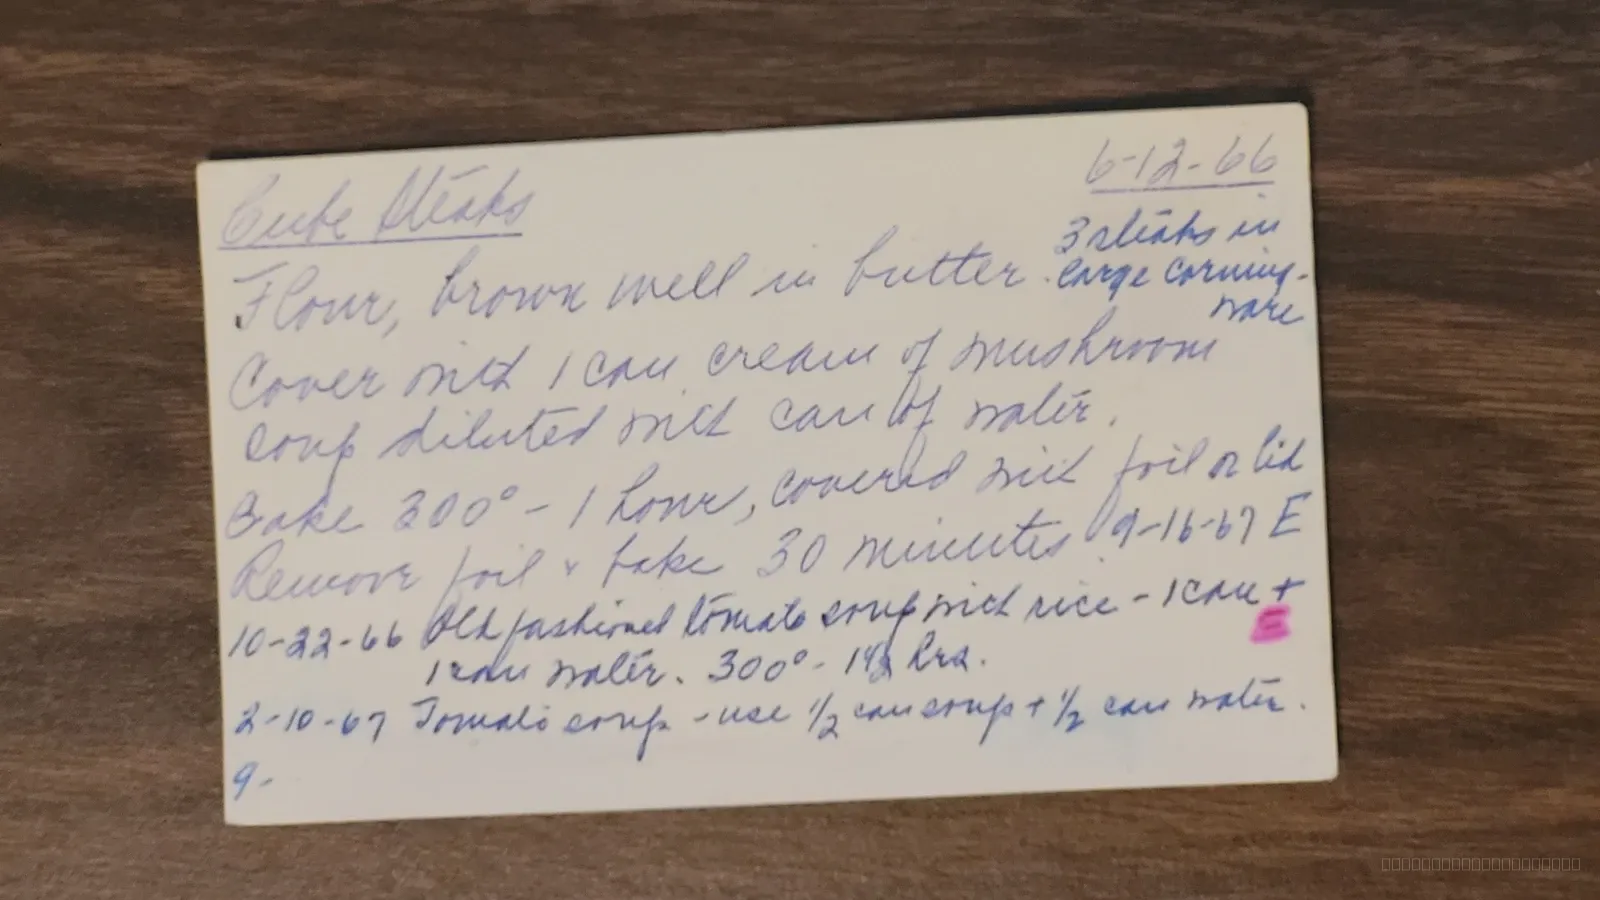 Cube Steaks
6-12-66
3 steaks in
large Corning-
ware
Flour, brown well in butter.
Cover with 1 can cream of mushroom
soup diluted with can of water.
Bake 300° - 1 hour, covered with foil or lid
Remove foil & bake 30 minutes. 9-16-67 E
10-22-66 Old fashioned tomato soup with rice - 1 can +
E
1 can water. 300° - 1½ hrs.
2-10-67 Tomato soup - use 1/2 can soup + 1/2 can water.
9-